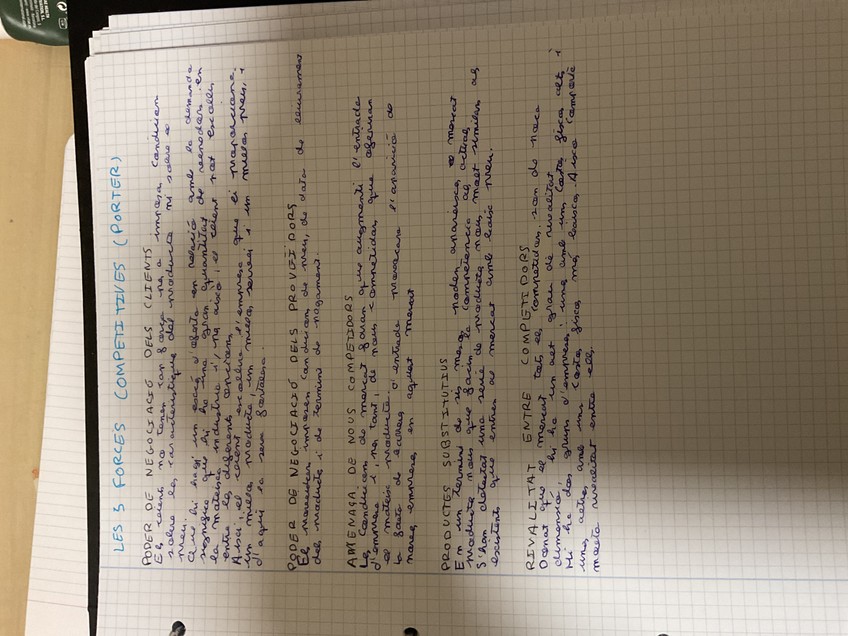 LES 5 FORCES COMPETITIVES (PORTER)
PODER DE NEGOCIACIÓ DELS CLIENTS
Els clients no tenen tan força per a imposar condicions
sobre les característiques del producte ni sobre el
preu.
Que hi hagi un excés d'oferta en relació amb la demanda
significa que hi ha una gran quantitat de venedors en
la mateixa indústria i, per això, el client pot escollir
entre les diferents opcions.
Així, el client escollirà l'empresa que li proporciona
un millor producte, un millor servei i un millor preu, i
d'aquí la seva fortalesa.
PODER DE NEGOCIACIÓ DELS PROVEÏDORS
Els proveïdors imposen condicions de preu, de data de lliurament
del producte i de termini de pagament.
AMENAÇA DE NOUS COMPETIDORS
Les condicions de mercat faran que augmenti l'entrada
d'empreses i, per tant, de nous competidors que ofereixen
el mateix producte.
La falta de barreres d'entrada provocarà l'aparició de
noves empreses en aquest mercat
PRODUCTES SUBSTITUTIUS
En un termini de sis mesos poden aparèixer al mercat
productes nous que facin la competència als actuals.
S'han detectat una sèrie de productes nous molt similars als
existents que entren al mercat amb baix preu.
RIVALITAT ENTRE COMPETIDORS
Donat que el mercat tots els competidors són de poca
dimensió, hi ha un alt grau de rivalitat
Hi ha dos grups d'empreses: unes amb uns costos fixos alts i
unes altres amb uns costos fixos més baixos. Això comporta
molta rivalitat entre ells.